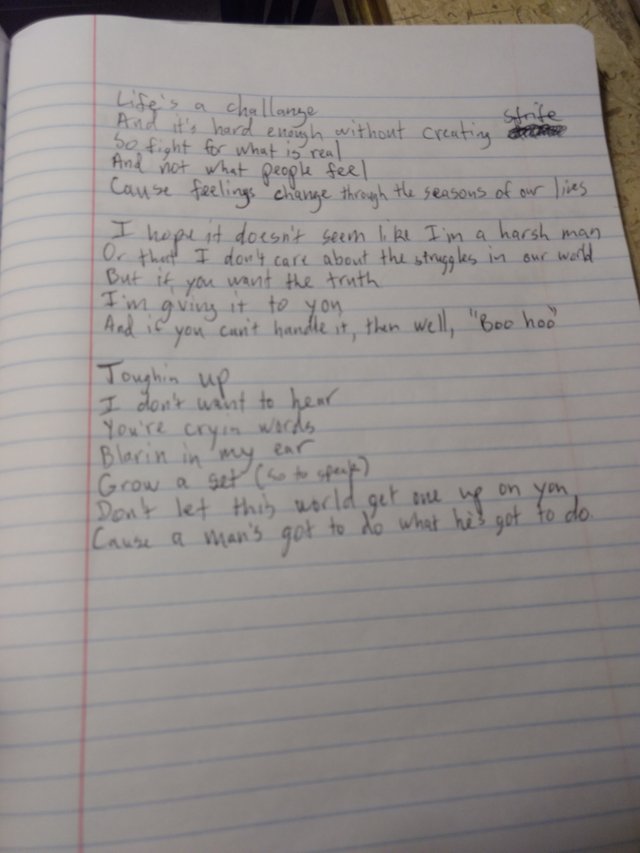 Life's a challange
And it's hard enough without creating strife
So fight for what is real
And not what people feel
Cause feelings change through the seasons of our lives
I hope it doesn't seem like I'm a harsh man
Or that I don't care about the struggles in our world
But if you want the truth
I'm giving it to you
And if you can't handle it, then well, "Boo hoo"
Toughin up
I don't want to hear
You're cryin words
Blarin in my ear
Grow a set (so to speak)
Don't let this world get one up on you
Cause a man's got to do what he's got to do.